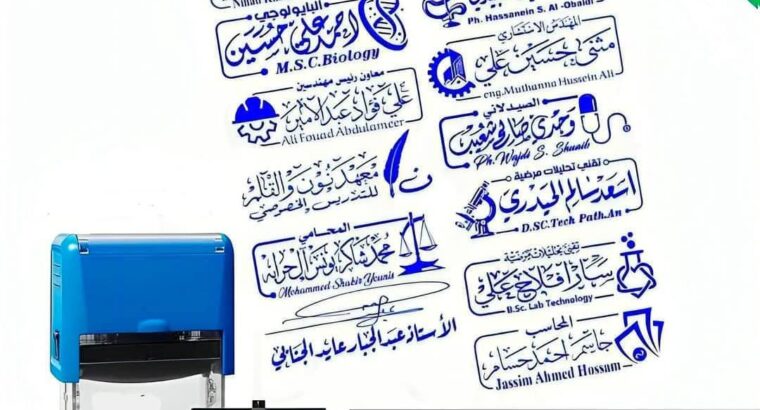 البايولوجي
احمد علي حسين
M.S.C.Biology
معاون رئيس مهندسين
علي فؤاد عبدالامير
Ali Fouad Abdulameer
معهد نون والقلم
للتدريس الخصوصي
ن
المحامي
محمد شاكر يونس ال حراله
Mohammed Shakir Younis
الأستاذ عبدالجبار عايد الجنابي
Ph. Hassanein S. Al -Obaidi
المهندس الاستشاري
مثنى حسين علي
eng.Muthanna Hussein Ali
الصيدلاني
وجدي صالح شعيب
Ph. Wajdi S. Shuaib
تقني تحليلات مرضية
اسعد سالم الحيدري
D.SC.Tech Path.An
تقني تحليلات مرضية
سارا فلاح علي
B.Sc. Lab Technology
المحاسب
جاسم احمد حسام
Jassim Ahmed Hossam